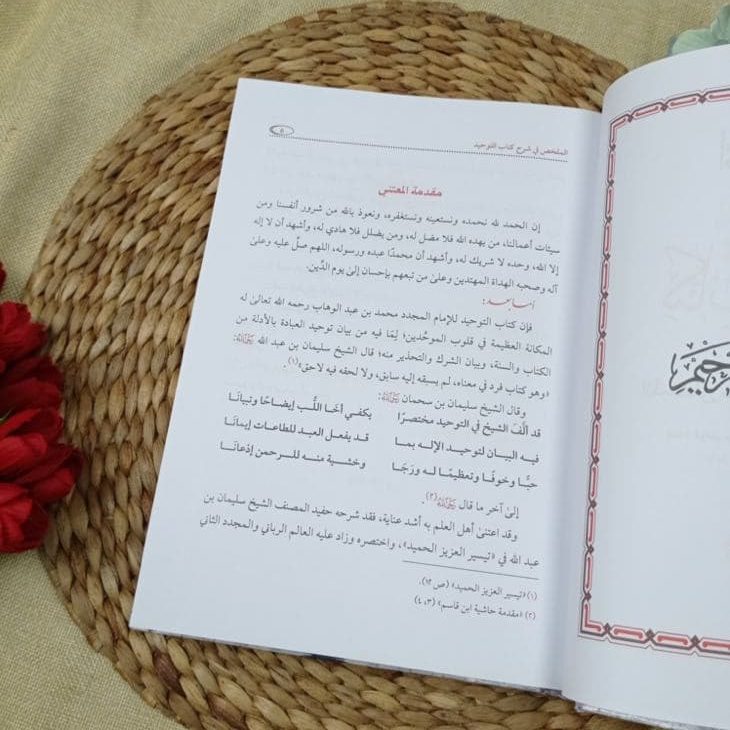 الملخص في شرح كتاب التوحيد
٥
مقدمة المعتني
إن الحمد لله نحمده ونستعينه ونستغفره، ونعوذ بالله من شرور أنفسنا ومن
سيئات أعمالنا، من يهده الله فلا مضل له، ومن يضلل فلا هادي له، وأشهد أن لا إله
إلا الله، وحده لا شريك له، وأشهد أن محمدًا عبده ورسوله، اللهم صلِّ عليه وعلىٰ
آله وصحبه الهداة المهتدين وعلىٰ من تبعهم بإحسان إلىٰ يوم الدِّين.
أما بعد:
فإن كتاب التوحيد للإمام المجدد محمد بن عبد الوهاب رحمه الله تعالىٰ له
المكانة العظيمة في قلوب الموحِّدين؛ لِمَا فيه من بيان توحيد العبادة بالأدلة من
الكتاب والسنة، وبيان الشرك والتحذير منه؛ قال الشيخ سليمان بن عبد الله رحمه الله:
«وهو كتاب فرد في معناه، لم يسبقه إليه سابق، ولا لحقه فيه لاحق»(١).
وقال الشيخ سليمان بن سحمان رحمه الله:
قد الَّفَ الشيخ في التوحيد مختصرًا يكفي أخَا اللُّب إيضاحًا وتبيانَا
فيه البيان لتوحيد الإله بما قد يفعل العبد للطاعات إيمانَا
حبًّا وخوفًا وتعظيمًا له ورَجَا وخشية منه للرحمن إذعانَا
إلىٰ آخر ما قال رحمه الله(٢).
وقد اعتنىٰ أهل العلم به أشد عناية، فقد شرحه حفيد المصنف الشيخ سليمان بن
عبد الله في «تيسير العزيز الحميد»، واختصره وزاد عليه العالم الرباني والمجدد الثاني
(١) «تيسير العزيز الحميد» (ص ١٢).
(٢) «مقدمة حاشية ابن قاسم» (٣، ٤)